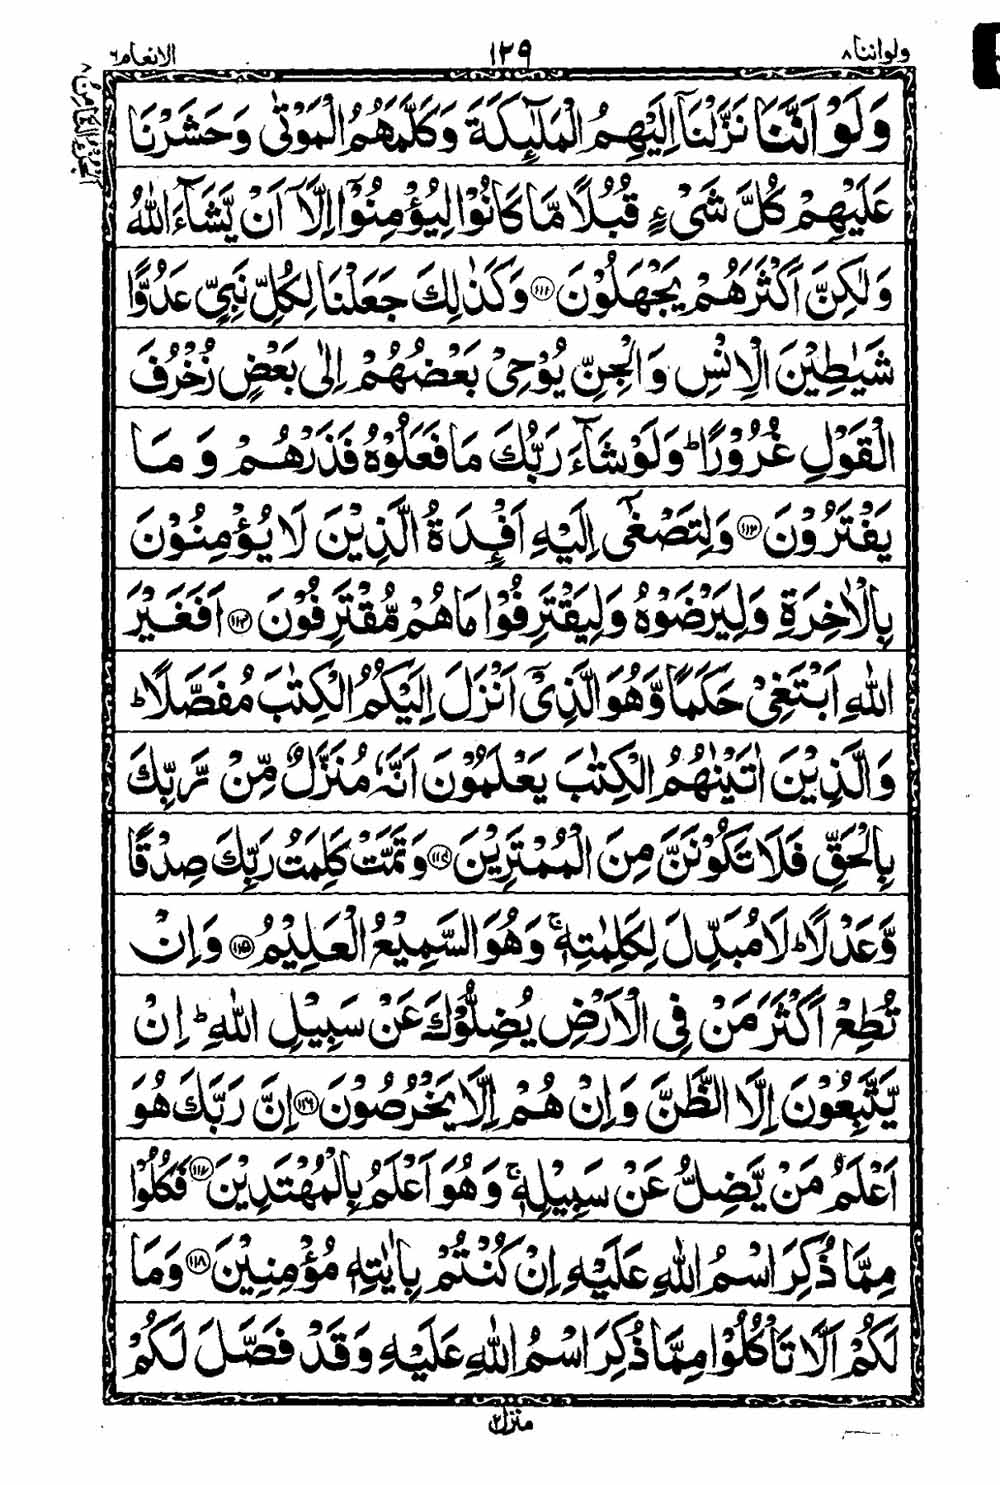 ولواننا ٨
١٢٩
الانعام ٦
وَلَوْ اَنَّنَا نَزَّلْنَاۤ اِلَيْهِمُ الْمَلٰٓئِكَةَ وَكَلَّمَهُمُ الْمَوْتٰى وَحَشَرْنَا
عَلَيْهِمْ كُلَّ شَىْءٍ قُبُلًا مَّا كَانُوْا لِيُؤْمِنُوْۤا اِلَّاۤ اَنْ يَّشَآءَ اللّٰهُ
وَلٰكِنَّ اَكْثَرَهُمْ يَجْهَلُوْنَ ﴿١١١﴾ وَكَذٰلِكَ جَعَلْنَا لِكُلِّ نَبِىٍّ عَدُوًّا
شَيٰطِيْنَ الْاِنْسِ وَالْجِنِّ يُوْحِىْ بَعْضُهُمْ اِلٰى بَعْضٍ زُخْرُفَ
الْقَوْلِ غُرُوْرًا ؕ وَلَوْ شَآءَ رَبُّكَ مَا فَعَلُوْهُ فَذَرْهُمْ وَمَا
يَفْتَرُوْنَ ﴿١١٢﴾ وَلِتَصْغٰۤى اِلَيْهِ اَفْـِٕدَةُ الَّذِيْنَ لَا يُؤْمِنُوْنَ
بِالْاٰخِرَةِ وَلِيَرْضَوْهُ وَلِيَقْتَرِفُوْا مَا هُمْ مُّقْتَرِفُوْنَ ﴿١١٣﴾ اَفَغَيْرَ
اللّٰهِ اَبْتَغِىْ حَكَمًا وَّهُوَ الَّذِىْۤ اَنْزَلَ اِلَيْكُمُ الْكِتٰبَ مُفَصَّلًا ؕ
وَالَّذِيْنَ اٰتَيْنٰهُمُ الْكِتٰبَ يَعْلَمُوْنَ اَنَّهٗ مُنَزَّلٌ مِّنْ رَّبِّكَ
بِالْحَقِّ فَلَا تَكُوْنَنَّ مِنَ الْمُمْتَرِيْنَ ﴿١١٤﴾ وَتَمَّتْ كَلِمَتُ رَبِّكَ صِدْقًا
وَّعَدْلًا ؕ لَا مُبَدِّلَ لِكَلِمٰتِهٖ ۚ وَهُوَ السَّمِيْعُ الْعَلِيْمُ ﴿١١٥﴾ وَاِنْ
تُطِعْ اَكْثَرَ مَنْ فِى الْاَرْضِ يُضِلُّوْكَ عَنْ سَبِيْلِ اللّٰهِ ؕ اِنْ
يَّتَّبِعُوْنَ اِلَّا الظَّنَّ وَاِنْ هُمْ اِلَّا يَخْرُصُوْنَ ﴿١١٦﴾ اِنَّ رَبَّكَ هُوَ
اَعْلَمُ مَنْ يَّضِلُّ عَنْ سَبِيْلِهٖ ۚ وَهُوَ اَعْلَمُ بِالْمُهْتَدِيْنَ ﴿١١٧﴾ فَكُلُوْا
مِمَّا ذُكِرَ اسْمُ اللّٰهِ عَلَيْهِ اِنْ كُنْتُمْ بِاٰيٰتِهٖ مُؤْمِنِيْنَ ﴿١١٨﴾ وَمَا
لَكُمْ اَلَّا تَاْكُلُوْا مِمَّا ذُكِرَ اسْمُ اللّٰهِ عَلَيْهِ وَقَدْ فَصَّلَ لَكُمْ
منزل ٢